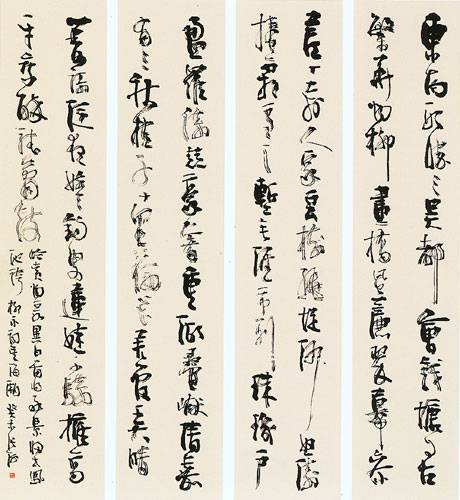 東南形勝三吳都會錢塘自古
繁華煙柳畫橋風簾翠幕參
差十萬人家雲樹繞堤沙怒濤
捲霜雪天塹無涯市列珠璣戶
盈羅綺競豪奢重湖疊巘清嘉
有三秋桂子十里荷花羌管弄晴
菱歌泛夜嬉嬉釣叟蓮娃千騎擁高
牙乘醉聽簫鼓
吟賞煙霞異日圖將好景歸去鳳
池誇 柳永詞望海潮 癸未